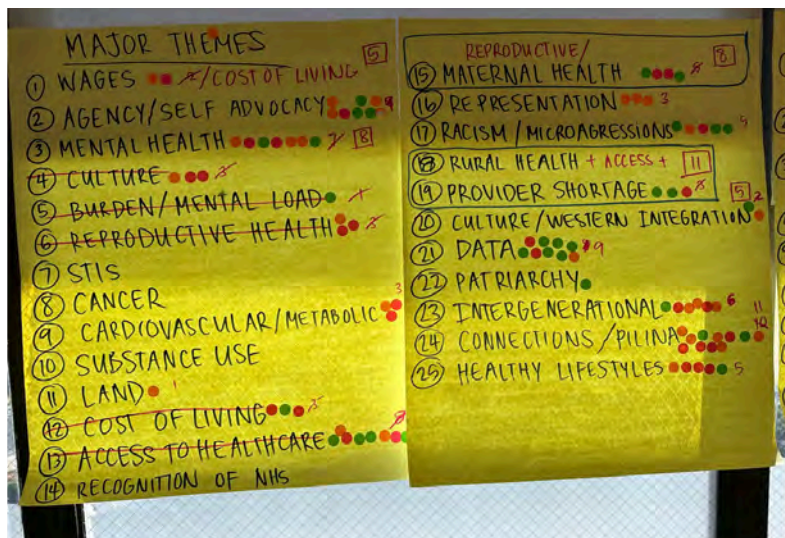 MAJOR THEMES
5
① WAGES /COST OF LIVING
② AGENCY/SELF ADVOCACY 9
③ MENTAL HEALTH 7 8
④ CULTURE 3
⑤ BURDEN/MENTAL LOAD 1
⑥ REPRODUCTIVE HEALTH 3
⑦ STIS
⑧ CANCER
⑨ CARDIOVASCULAR/METABOLIC 3
⑩ SUBSTANCE USE
⑪ LAND 1
⑫ COST OF LIVING 3
⑬ ACCESS TO HEALTHCARE 8
⑭ RECOGNITION OF NHS
REPRODUCTIVE/ 8
⑮ MATERNAL HEALTH
⑯ REPRESENTATION 3
⑰ RACISM/MICROAGRESSIONS 5
⑱ RURAL HEALTH + ACCESS + 11
⑲ PROVIDER SHORTAGE 5
⑳ CULTURE/WESTERN INTEGRATION 2
㉑ DATA 9
㉒ PATRIARCHY
㉓ INTERGENERATIONAL 6
㉔ CONNECTIONS/PILINA 11
㉕ HEALTHY LIFESTYLES 5